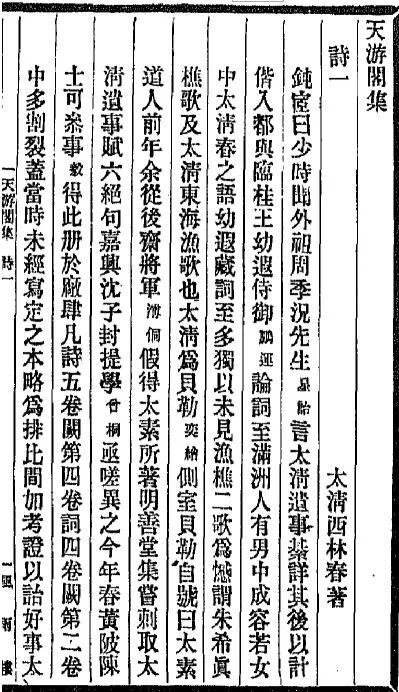 天游閣集
詩一
太清西林春著
鈍宧曰少時聞外祖周季況先生星詒言太清遺事綦詳其後以計
偕入都與臨桂王幼遐侍御鵬運論詞至滿洲人有男中成容若女
中太清春之語幼遐藏詞至多獨以未見漁樵二歌爲憾謂朱希眞
樵歌及太清東海漁歌也太清爲貝勒奕繪側室貝勒自號曰太素
道人前年余從後齋將軍溥侗假得太素所著明善堂集嘗刺取太
淸遺事賦六絕句嘉興沈子封提學曾桐亟嗟異之今年春黃陂陳
士可叅事毅得此册於廠肆凡詩五卷闕第四卷詞四卷闕第二卷
中多割裂蓋當時未經寫定之本略爲排比間加考證以詒好事太
天游閣集 詩一
一 風雨樓